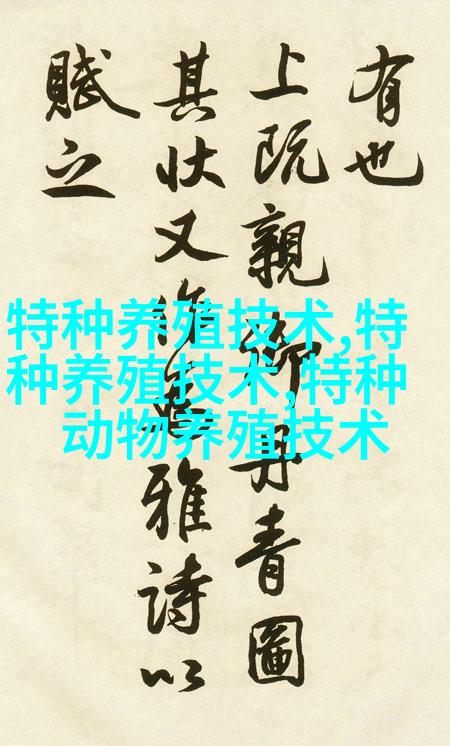 有也
上既親御丹青圖
其狀又作爲雅詩以
賦之
特种养殖技术,特
种养殖技术,特种
动物养殖技术